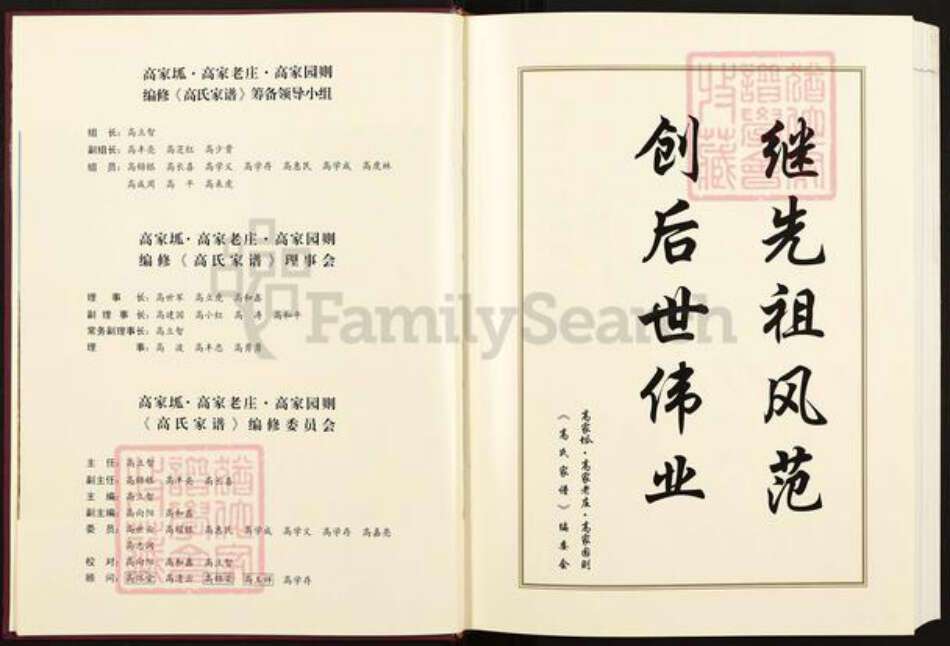 高家坬·高家老庄·高家园则
编修《高氏家谱》筹备领导小组
组 长：高立智
副组长：高丰亮 高芝红 高少贵
组 员：高锦银 高长喜 高学义 高学存 高惠民 高学成 高虎林
高成周 高 平 高来虎
高家坬·高家老庄·高家园则
编修《高氏家谱》理事会
理 事 长：高世军 高立虎 高和鑫
副理事长：高建国 高小红 高 涛 高和平
常务副理事长：高立智
理 事：高 波 高丰忠
高家坬·高家老庄·高家园则
《高氏家谱》编修委员会
主 任：高立智
副主任：高锦银 高丰亮 高长喜
主 编：高立智
副主编：高向阳 高和鑫
委 员：高世云 高惠民 高学成 高学义 高学存 高嘉亮
校 对：高向阳 高和鑫 高立智
顾 问：高学存
继先祖风范
创后世伟业
高家坬·高家老庄·高家园则
《高氏家谱》编委会
FamilySearch